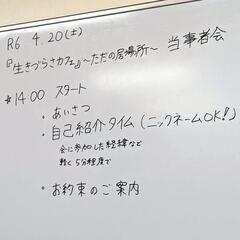 R6 4.20(土)
『生きづらさカフェ』〜ただの居場所〜 当事者会
☆14:00 スタート
・あいさつ
・自己紹介タイム(ニックネームOK!)
会に参加した経緯など
軽く5分程度で
・お約束のご案内